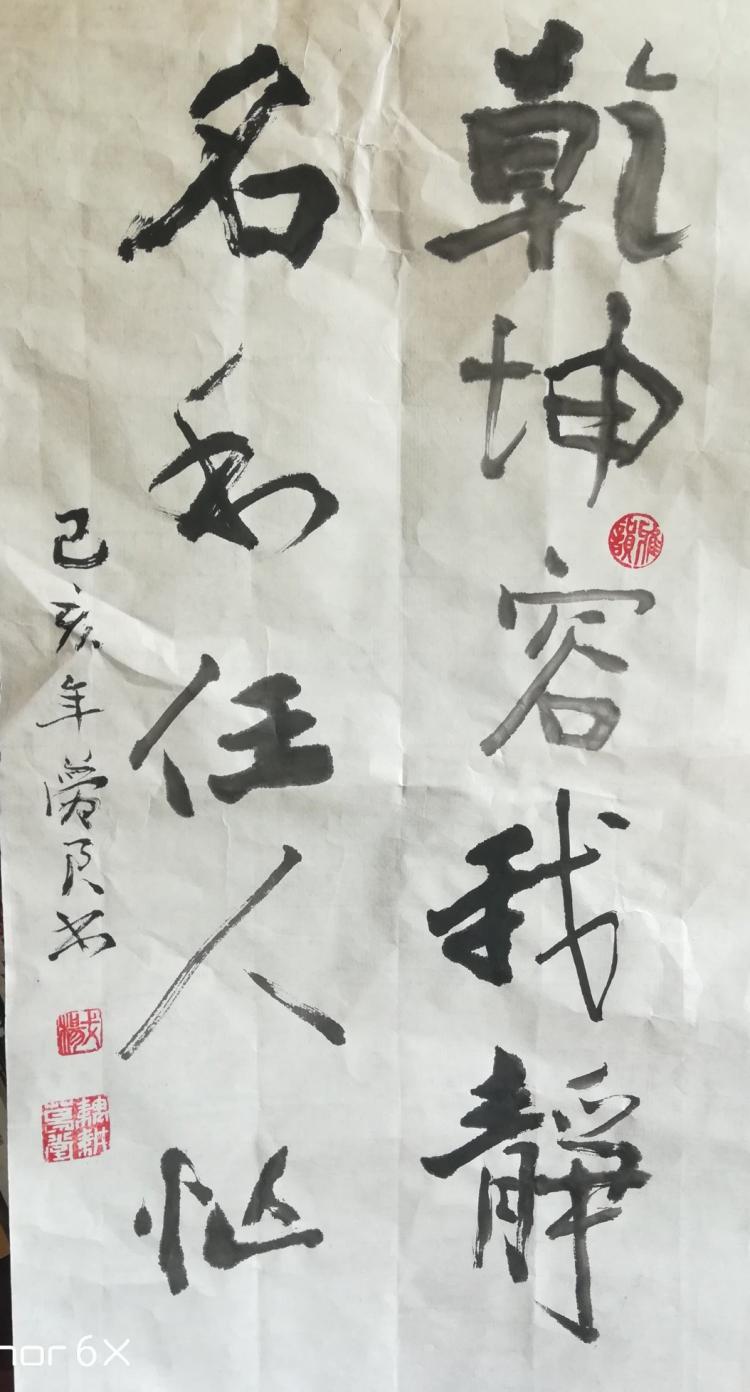 乾坤容我静
名利任人忙
己亥年
雅韻
nor 6X